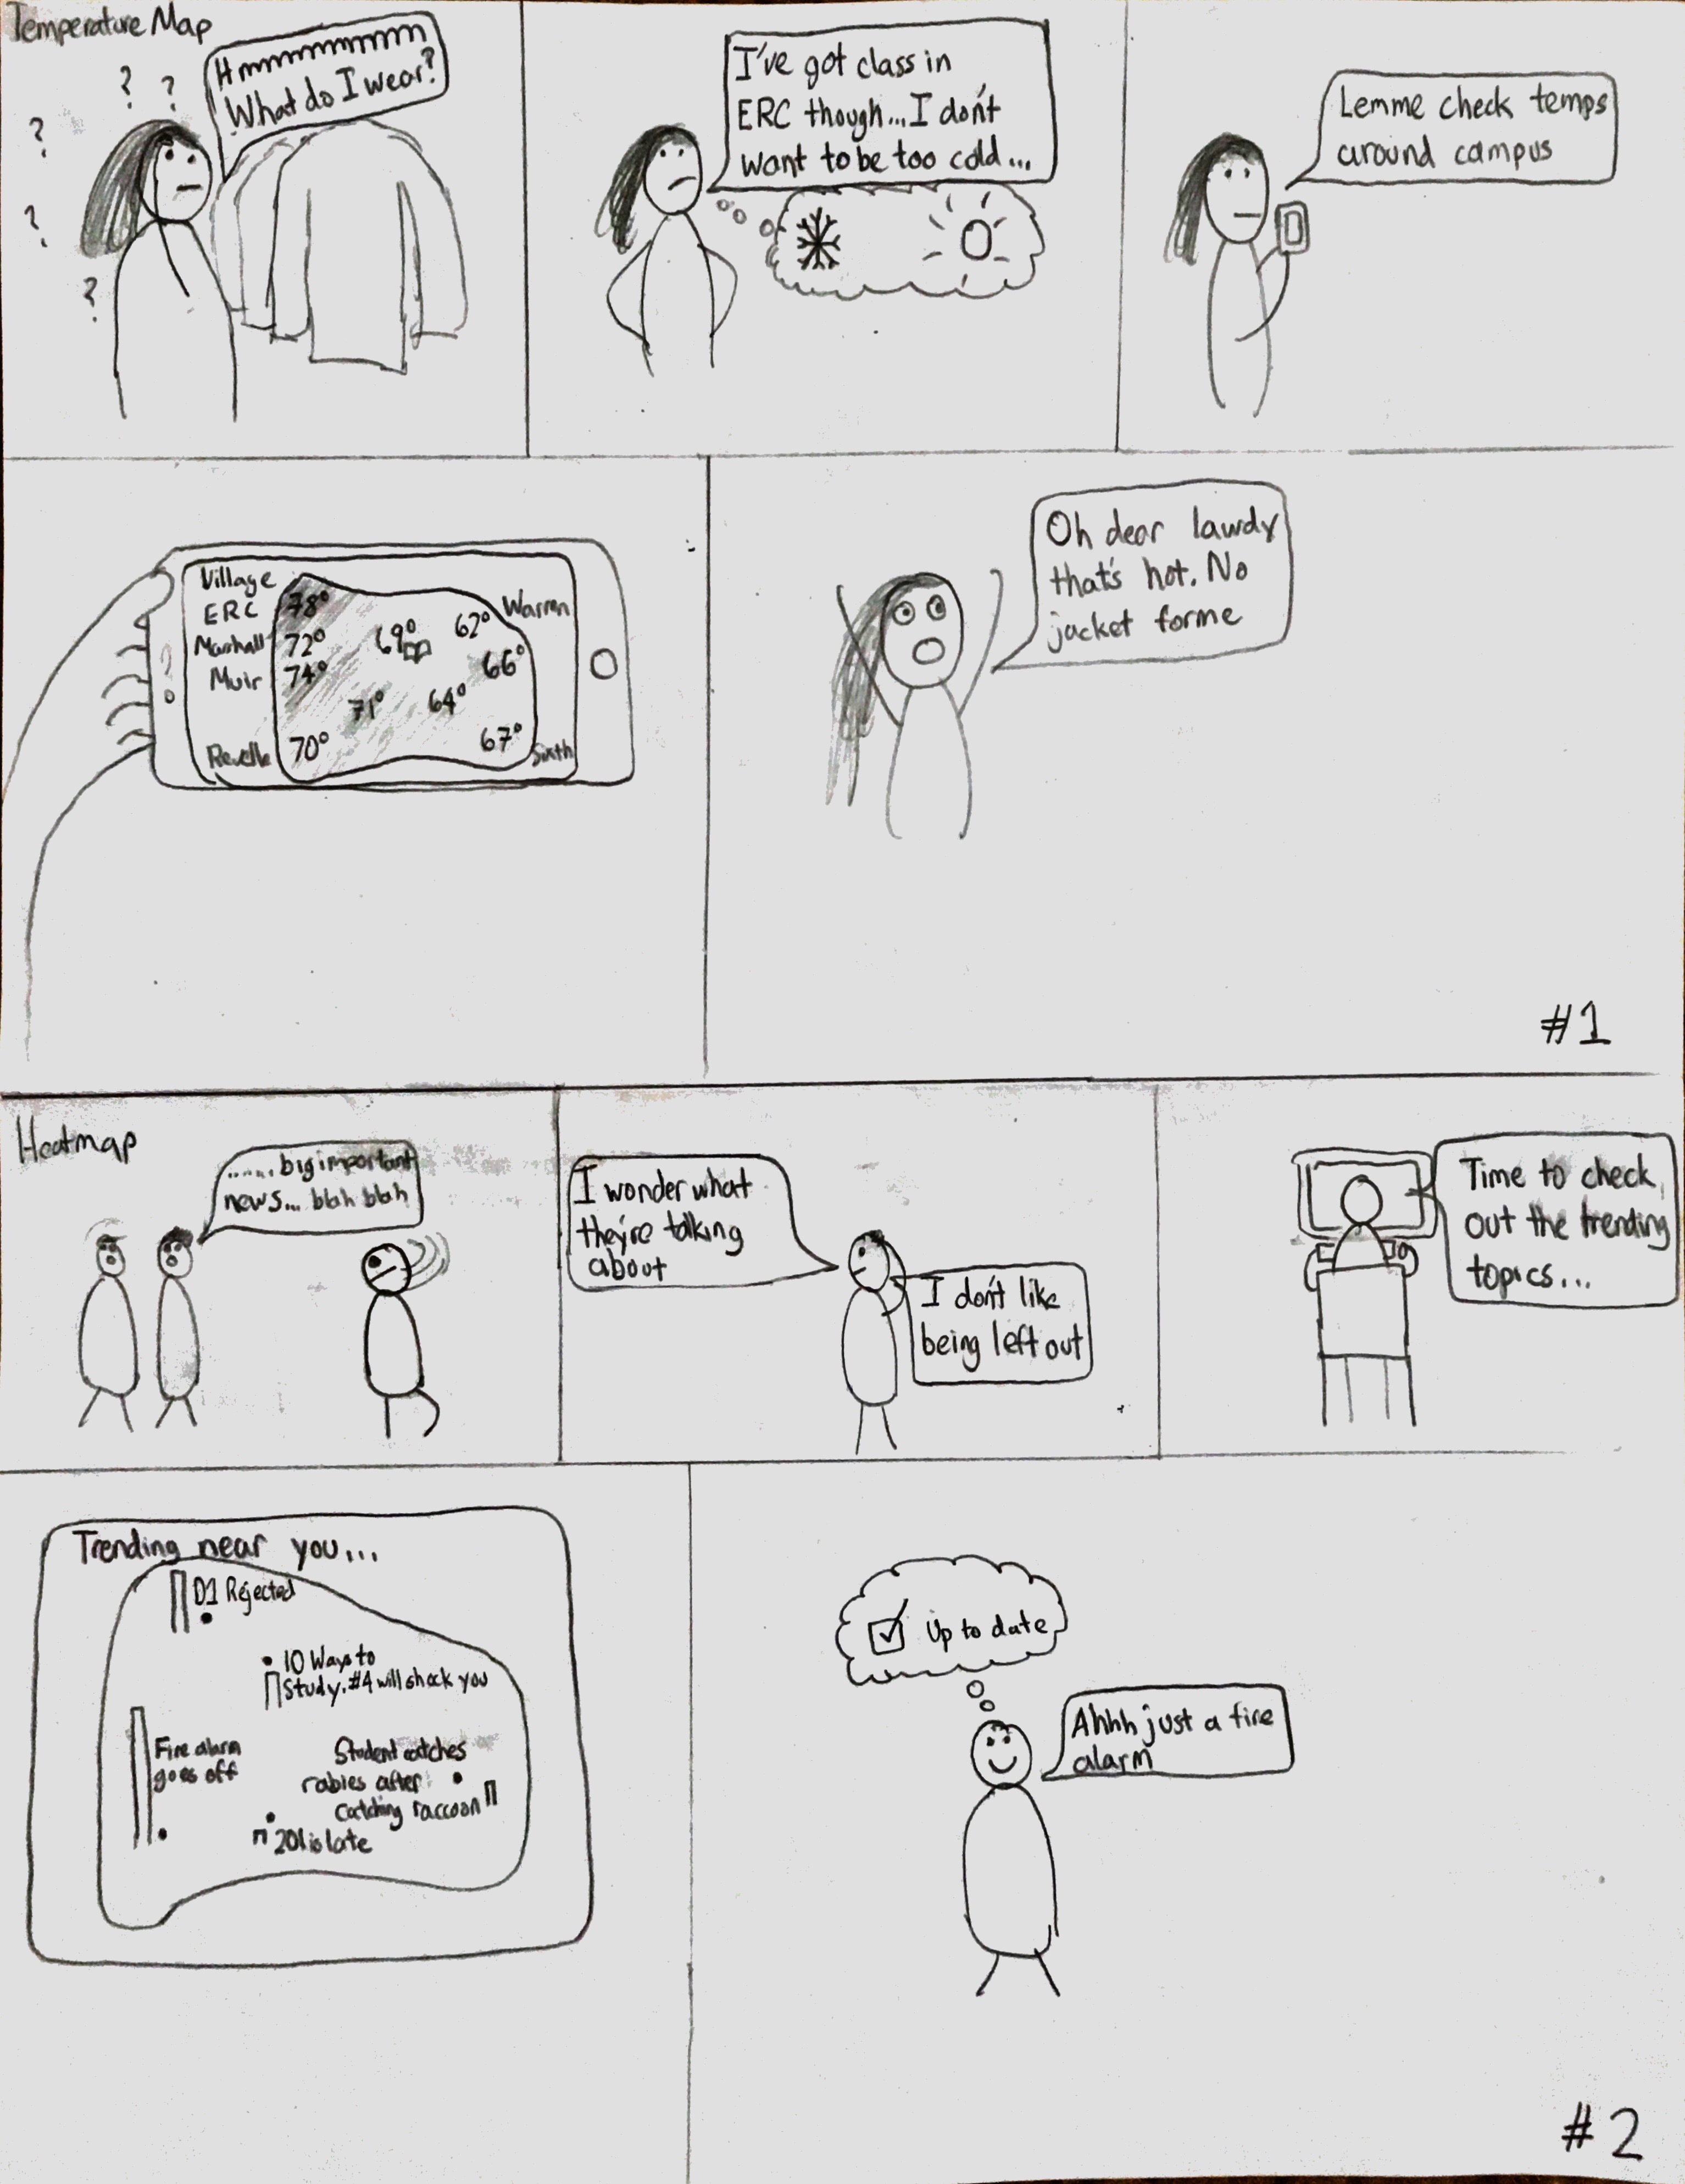 Temperature Map
? ? ? ? ?
Hmmmmmmmm
What do I wear?
I've got class in
ERC though...I don't
want to be too cold...
Lemme check temps
around campus
Village
ERC 78°
Marshall 72°
Muir 74°
69°
62° Warren
66°
71°
64°
Revelle 70°
67° Sixth
Oh dear lawdy
that's hot. No
jacket for me
#1
Heatmap
...... big important
news... blah blah
I wonder what
they're talking
about
I don't like
being left out
Time to check
out the trending
topics...
Trending near you...
D1 Rejected
10 Ways to
Study. #4 will shock you
Fire alarm
goes off
Student catches
rabies after
catching raccoon
201 is late
Up to date
Ahhh just a fire
alarm
#2